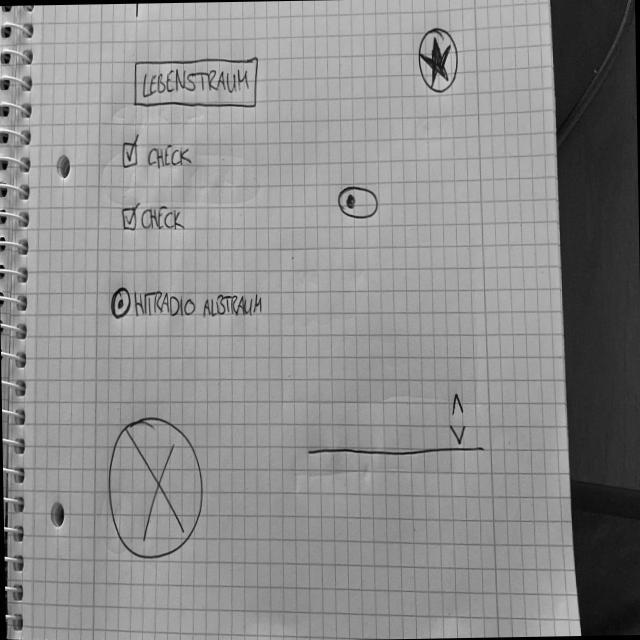 LEBENSTRAUM
CHECK
CHECK
HITRADIO ALBTRAUM